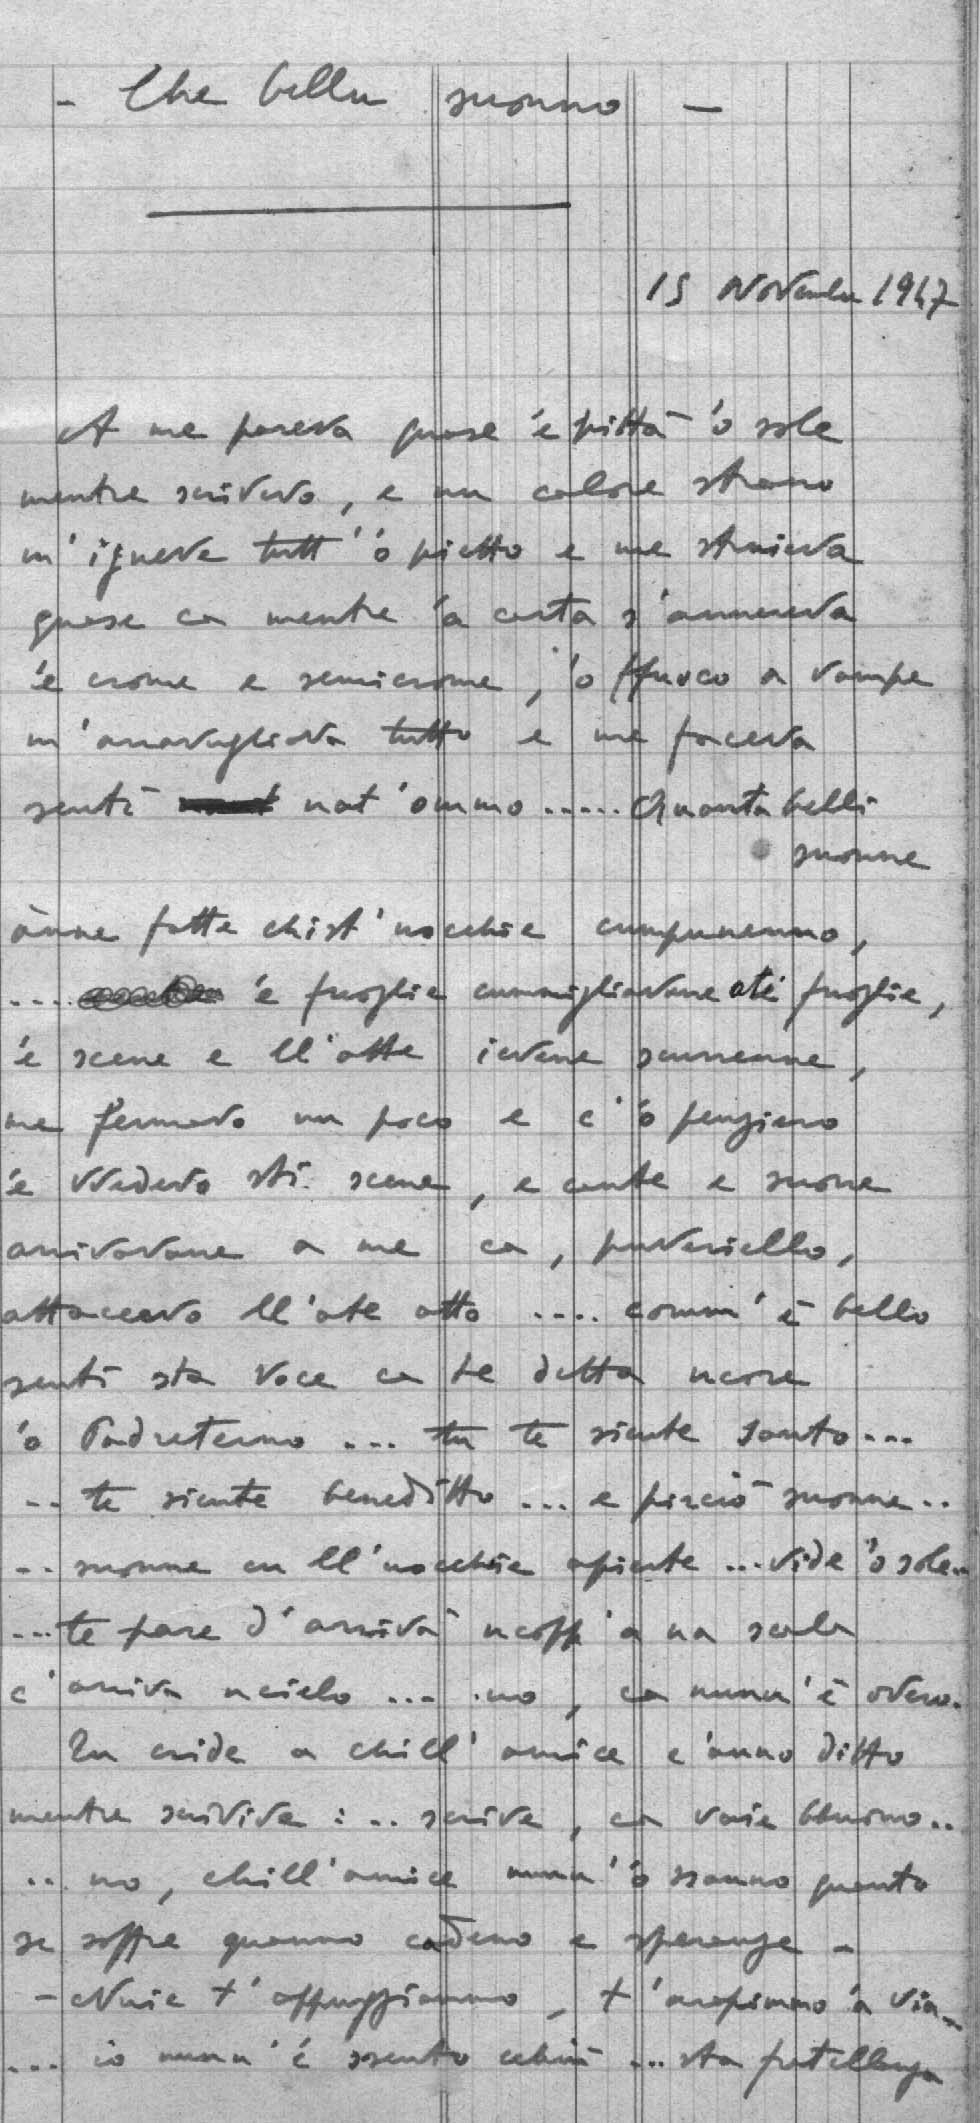 - Che bellu suonno -
15 Novembre 1947
A me pareva quase 'e pittà 'o sole
mentre scrivevo, e nu calore strano
m'igneva tutt' 'o pietto e me struieva
quase ca mentre 'a carta s'annereva
'e crome e semicrome, 'o ffuoco a vampe
m'arravugliava tutto e me faceva
sentì nat'ommo ..... Quanta belli
suonne
ànne fatte chist'uocchie cumpunenno,
.... 'e fuoglie cummigliavane ati fuoglie,
'e scene e ll'atte ievene scurrenne,
me fermavo nu poco e c' 'o penziero
'e vvedevo sti scene, e cante e suone
arrivavane a me ca, puveriello,
attaccavo ll'ate atto .... comm'è bello
sentì sta voce ca te detta ncore
'o Padreterno ... tu te siente santo ...
.. te siente beneditto ... e perciò suonne ..
.. suonne cu ll'uocchie apierte ... vide 'o sole..
... te pare d'arrivà ncopp'a na scala
c'arriva ncielo ... no, ca nunn'è overo.
Tu cride a chill'amice c'anno ditto
mentre scrivive : .. scrive, ca vaie bbuono ..
... no, chill'amice nunn' 'o sanno quanto
se soffre quanno cadeno e speranze -
- Nuie t'appuggiammo, t'arapimmo 'a via_
... io nunn' 'e ssento cchiù ... sta fratellanza